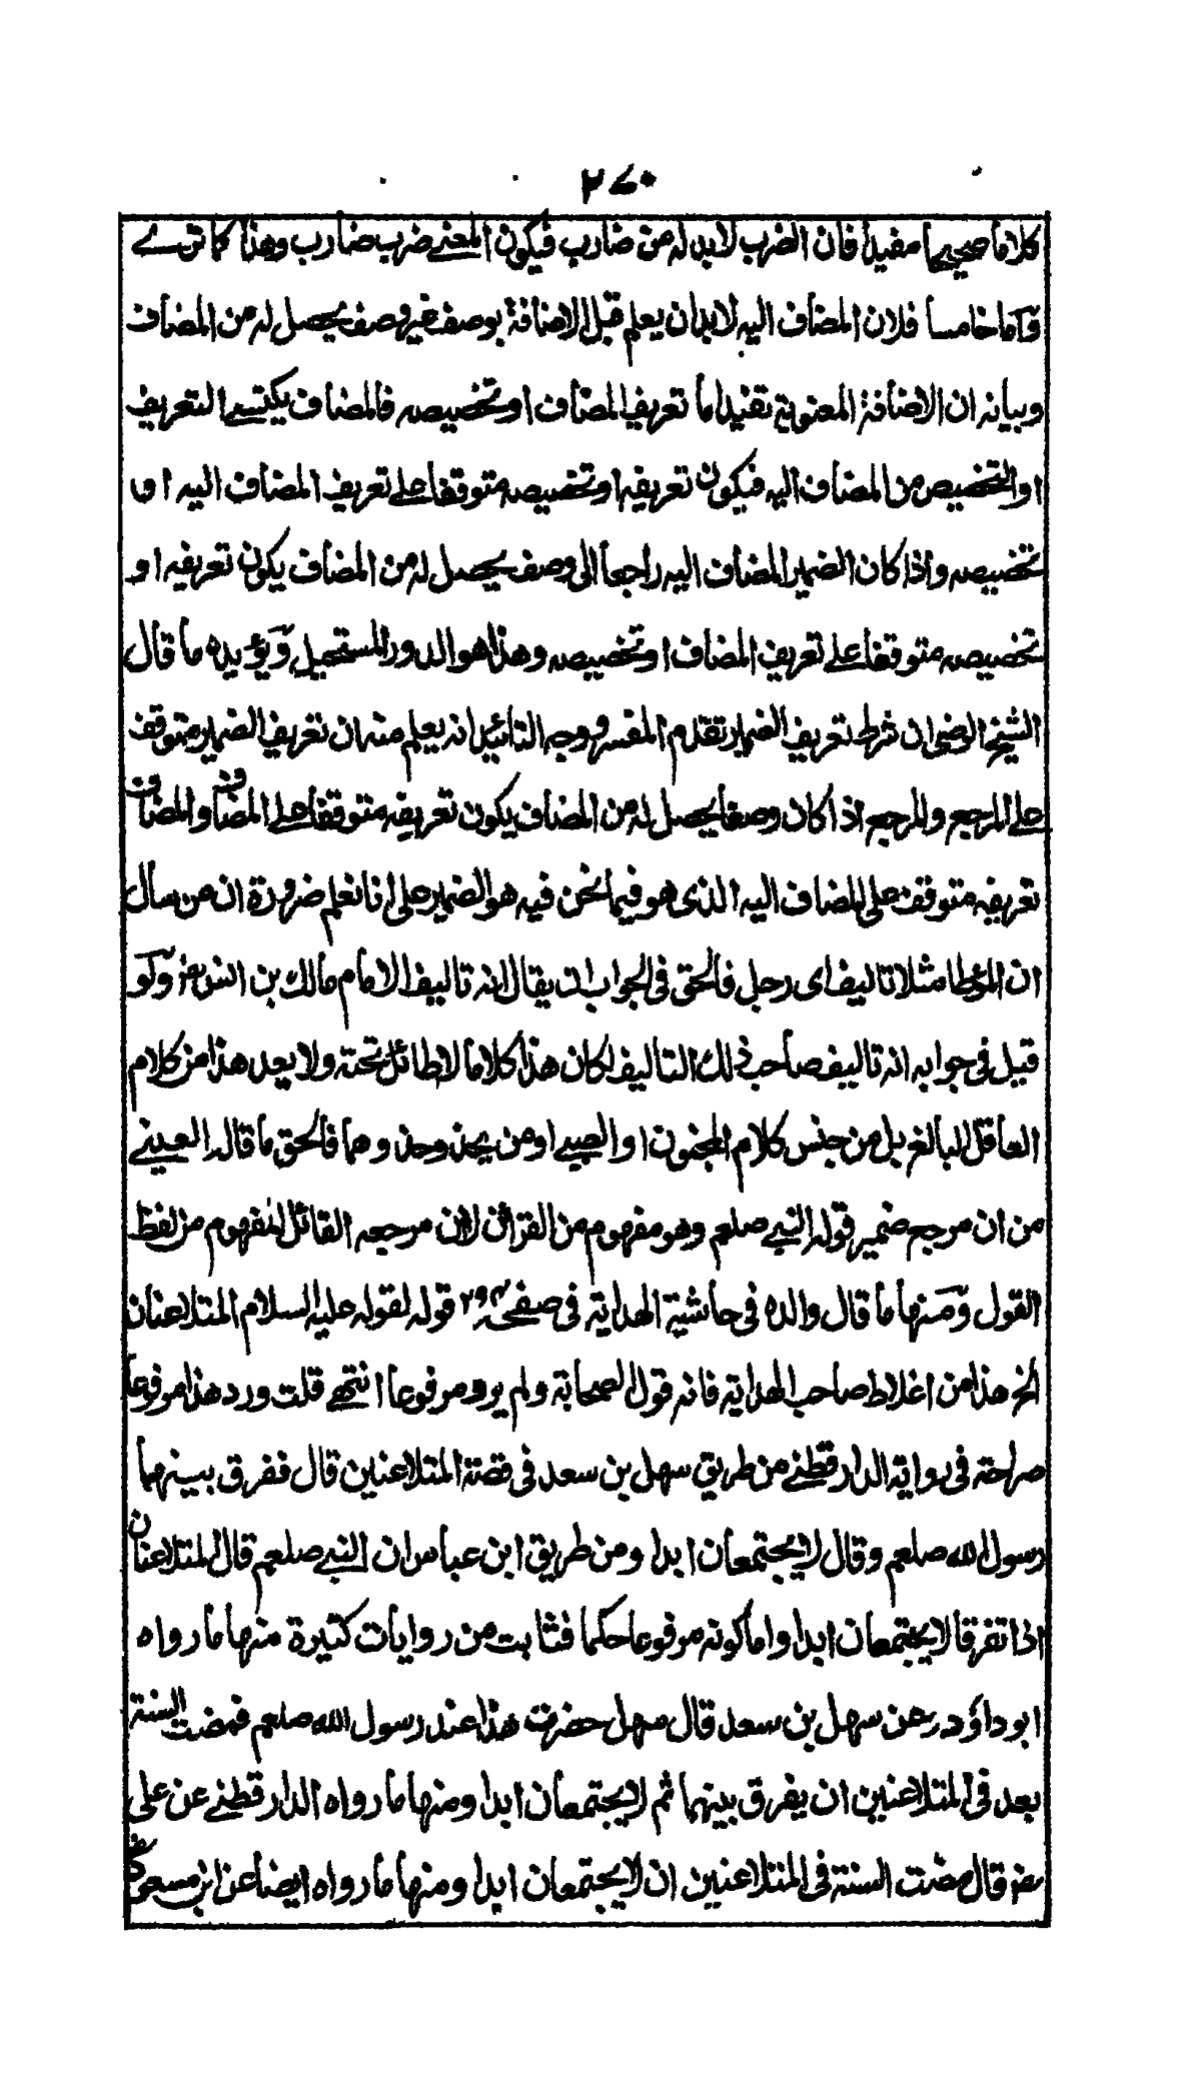 ٢٧٠
كلاما صحيحا مفيدا فان الضرب لابد له من ضارب فيكون المعنے ضرب ضارب وهذا كما ترے
وآما خامسا فلان المضاف اليه لابد ان يعلم قبل الاضافة بوصف غير وصف يحصل له من المضاف
وبيانه ان الاضافة المعنوية تفيد اما تعريف المضاف او تخصيصه فالمضاف يكتسے التعريف
او التخصيص من المضاف اليه فيكون تعريفه او تخصيصه متوقفا علے تعريف المضاف اليه او
تخصيصه واذا كان الضمير المضاف اليه راجعا الى وصف يحصل له من المضاف يكون تعريفه او
تخصيصه متوقفا علے تعريف المضاف او تخصيصه وهذا هو الدور المستحيل وَيؤيده ما قال
الشيخ الرضى ان شرط تعريف الضمير تقدم المفسر ووجه التائيد انه يعلم منه ان تعريف الضمير متوقف
علے المرجع والمرجع اذا كان وصفا يحصل له من المضاف يكون تعريفه متوقفا علے المضاف والمضاف
تعريفه متوقف على المضاف اليه الذى هو فيما نحن فيه هو الضمير على انا نعلم ضرورة ان من سأل
ان المؤطا مثلا تاليف اى رجل فالحق فى الجواب ان يقال انه تاليف الامام مالك بن انس رض وَلو
قيل فى جوابه انه تاليف صاحب ذلك التاليف لكان هذا كلاما لاطائل تحته ولا يعد هذا من كلام
العاقل البالغ بل من جنس كلام المجنون او الصبے او من يحذ وحذوهما فالحق ما قاله العينے
من ان مرجع ضمير قوله النبے صلعم وهو مفهوم من القرائن لان مرجعه القائل المفهوم من لفظ
القول وَمنها ما قال والده فى حاشية الهداية فى صفحه ٢٩٤ قوله لقوله عليه السلام المتلاعنان
الخ هذا من اغلاط صاحب الهداية فانه قول الصحابة ولم يرو مرفوعا انتهے قلت ورد هذا مرفوعا
صراحة فى رواية الدارقطنے من طريق سهل بن سعد فى قصة المتلاعنين قال ففرق بينهما
رسول الله صلعم وقال لا يجتمعان ابدا ومن طريق ابن عباس ان النبے صلعم قال المتلاعنان
اذا تفرقا لا يجتمعان ابدا واما كونه مرفوعا حكما فثابت من روايات كثيرة منها ما رواه
ابو داؤد عن سهل بن سعد قال سهل حضرت هذا عند رسول الله صلعم فمضت السنة
بعد فى المتلاعنين ان يفرق بينهما ثم لا يجتمعان ابدا ومنها ما رواه الدارقطنے عن على
رض قال مضت السنة فى المتلاعنين ان لا يجتمعان ابدا ومنها ما رواه ايضا عن ابن مسعود رض